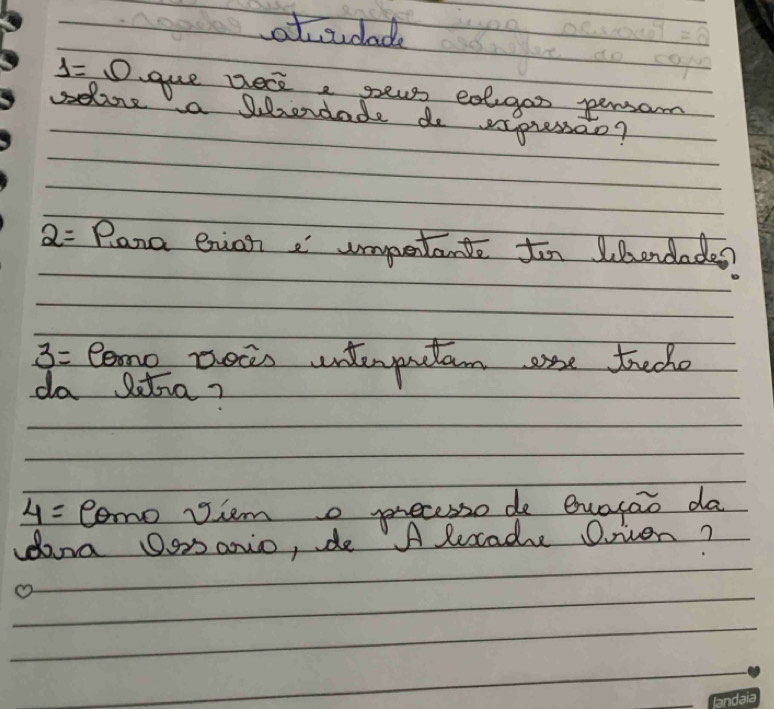 atividade
1= O que você e seus colegas pensam
sobre a liberdade de expressão?
2= Para criar é importante ter liberdade?
3= Como vocês interpretam esse trecho
da letra?
4= Como viem o processo de criação da
obra Ossario, de Alexadre Orion?
jandaia